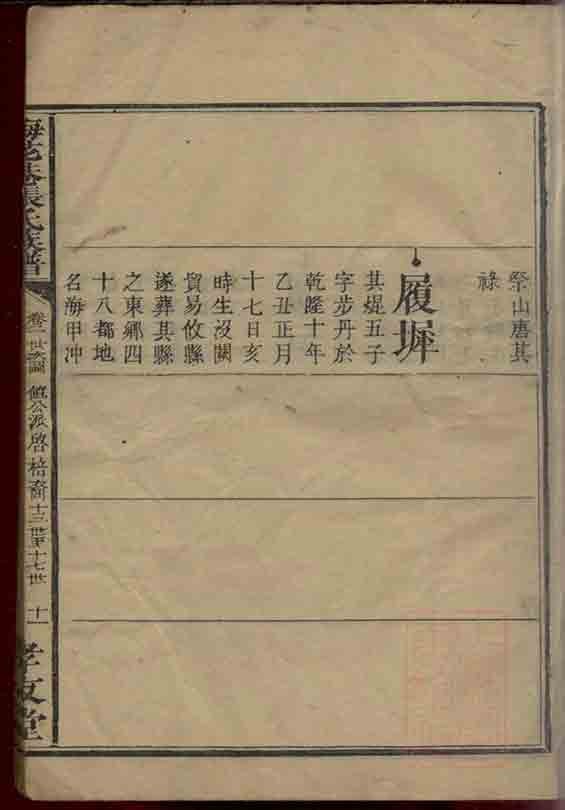 祭山唐其
祿
履墀
其焜五子
字步丹於
乾隆十年
乙丑正月
十七日亥
時生沒闕
貿易攸縣
遂葬其縣
之東鄉四
十八都地
名海甲冲
張氏族譜
世 公派啓 裔十三世至十七世
十一
孝友堂